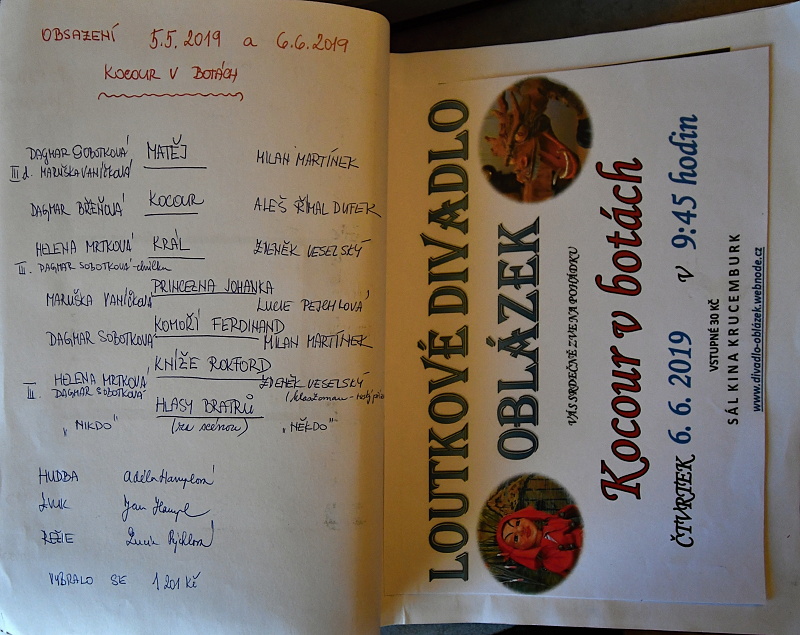 OBSAZENÍ 5.5.2019 a 6.6.2019
KOCOUR V BOTÁCH
DAGMAR SOBOTKOVÁ MATĚJ MILAN MARTÍNEK
III d. MARUŠKA VANÍČKOVÁ
DAGMAR BŘEŇOVÁ KOCOUR ALEŠ ŘÍMAL DUFEK
HELENA MRTKOVÁ KRÁL ZDENĚK VESELSKÝ
III. DAGMAR SOBOTKOVÁ
PRINCEZNA JOHANKA
MARUŠKA VANÍČKOVÁ LUCIE PEJCHLOVÁ
KOMOŘÍ FERDINAND
DAGMAR SOBOTKOVÁ MILAN MARTÍNEK
KNÍŽE ROKFORD
HELENA MRTKOVÁ ZDENĚK VESELSKÝ
III. DAGMAR SOBOTKOVÁ
HLASY BRATRŮ
„NIKDO" (za scénou) „NĚKDO"
HUDBA Adéla Hamplová
ZVUK Jan Hampl
REŽIE Lucie
VYBRALO SE 1 201 KČ
LOUTKOVÉ DIVADLO
OBLÁZEK
VÁS SRDEČNĚ ZVE NA POHÁDKU
Kocour v botách
ČTVRTEK 6. 6. 2019 v 9:45 hodin
VSTUPNÉ 30 KČ
SÁL KINA KRUCEMBURK
www.divadlo-oblázek.webnode.cz